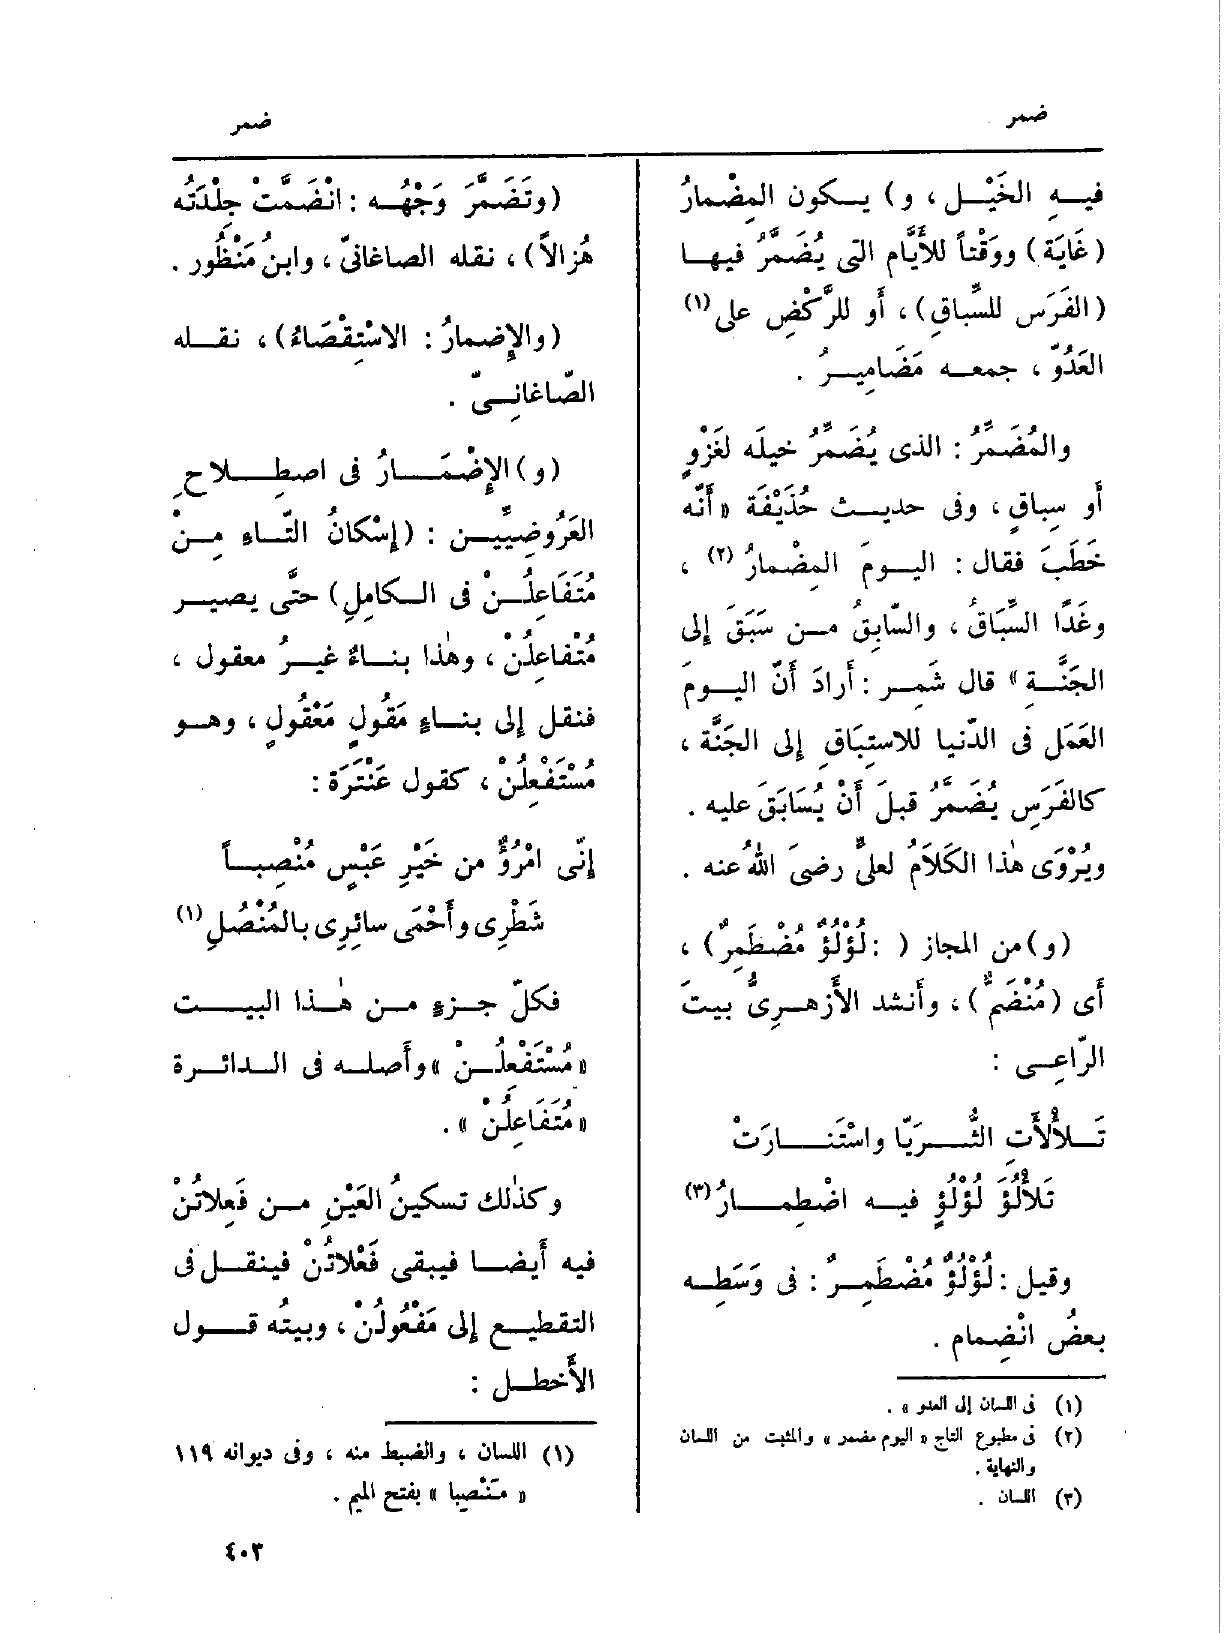 ضمر
ضمر
فيـه الخَيْـل ، و) يـكون المِضْمارُ
(غَايَة) ووَقْتاً للأَيَّام التى يُضَمَّرُ فيهـا
(الفَرَس للسِّباقِ) ، أَو للرَّكْضِ على (١)
العَدُوّ ، جمعـه مَضَامِيـرُ .
والمُضَمِّرُ : الذى يُضَمِّرُ خيلَه لغَزْوٍ
أَو سِباقٍ ، وفى حديـث حُذَيْفَة « أَنَّه
خَطَبَ فقال : اليـومَ المِضْمارُ (٢) ،
وغَدًا السِّبَاقُ ، والسّابِقُ مـن سَبَقَ إلى
الجَنَّـة » قال شَمِـر : أَرادَ أَنّ اليـومَ
العَمَل فى الدّنيا للاستِبَاقِ إلى الجَنَّة ،
كالفَرَسِ يُضَمَّرُ قبلَ أَنْ يُسَابَقَ عليه .
ويُرْوَى هٰذا الكَلَامُ لعلىٍّ رضىَ اللهُ عنه .
(و) من المجاز ( : لُؤْلُؤٌ مُضْطَمِرٌ) ،
أَى (مُنْضَمٌّ) ، وأَنشد الأَزهـرِىُّ بيتَ
الرّاعِـى :
تَـلَأْلَأَتِ الثُّـرَيّا واسْتَنـارَتْ
تَلَأْلُؤَ لُؤْلُؤٍ فيـه اضْطِمـارُ (٣)
وقيل : لُؤْلُؤٌ مُضْطَمِـرٌ : فى وَسَطِـه
بعضُ انْضِمام .
(١) فى اللسان إلى العدو » .
(٢) فى مطبوع التاج « اليوم مضمر » والمثبت من اللسان
والنهاية .
(٣) اللسان .
(وتَضَمَّرَ وَجْهُـه : انْضَمَّتْ جِلْدَتُه
هُزالاً) ، نقله الصاغانىّ ، وابنُ مَنْظُور .
(والإِضمارُ : الاسْتِقْصَاءُ) ، نقـله
الصّاغانِـىّ .
(و) الإِضْمَـارُ فى اصطِـلاحِ
العَرُوضِيِّيـن : (إِسْكانُ التّـاءِ مِـنْ
مُتَفَاعِلُـنْ فى الـكامِلِ) حتَّى يصيـر
مُتْفاعِلُنْ ، وهٰذا بنـاءٌ غيـرُ معقول ،
فنقل إلى بنـاءٍ مَقُولٍ مَعْقُولٍ ، وهـو
مُسْتَفْعِلُنْ ، كقول عَنْتَرَة :
إِنّى امْرُؤٌ من خَيْرِ عَبْسٍ مُنْصِبـاً
شَطْرِى وأَحْمَى سائِرِى بالمُنْصُلِ (١)
فكلّ جـزءٍ مـن هٰـذا البيـت
« مُسْتَفْعِلُـنْ » وأَصلـه فى الـدائـرة
« مُتَفَاعِلُنْ » .
وكذٰلك تسكينُ العَيْنِ مـن فَعِلاتُنْ
فيه أَيضـا فيبقى فَعْلاتُنْ فينقـل فى
التقطيـع إلى مَفْعُولُنْ ، وبيتُه قـول
الأَخطـل :
(١) اللسان ، والضبط منه ، وفى ديوانه ١١٩
« مَنْصِبا » بفتح الميم .
٤٠٣